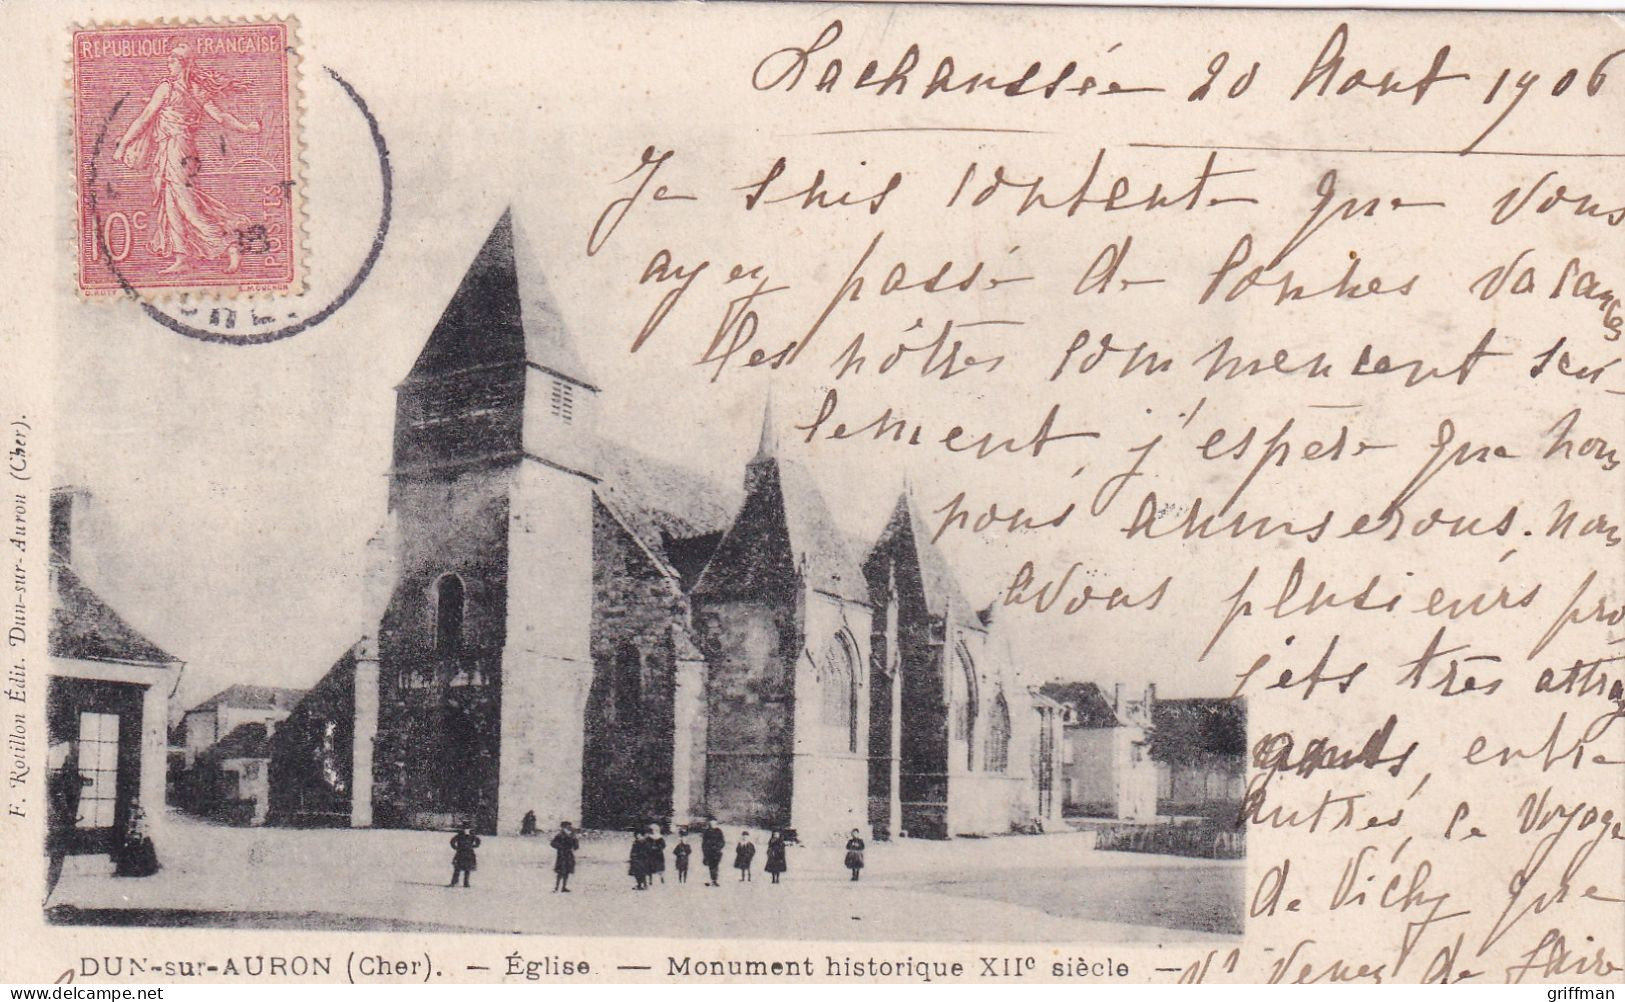 REPUBLIQUE FRANÇAISE
10c
POSTES
Lachaussée 20 Aout 1906
Je suis contente que vous
ayez passé de bonnes vacances
les nôtres commencent seu-
lement, j'espère que nous
nous amuserons. nous
avons plusieurs pro
jets très attra
yants, entre
autres, le voyage
de Vichy que
Vs venez de faire
F. Rouillon Édit. Dun-sur-Auron (Cher).
DUN-sur-AURON (Cher). — Église — Monument historique XIIe siècle —
delcampe.net
griffman